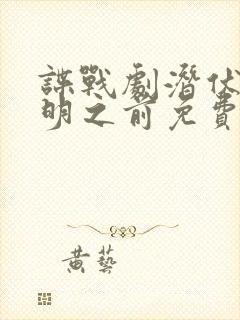 諜戰劇潛伏
明之前免費
黃藝